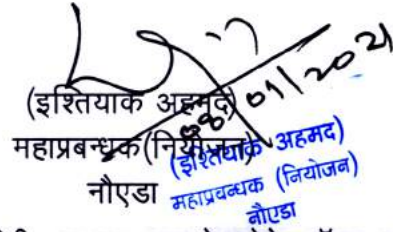 08/01/2021
(इश्तियाक अहमद)
महाप्रबन्धक(नियोजन)
नौएडा
(इश्तियाक अहमद)
महाप्रबन्धक (नियोजन)
नौएडा